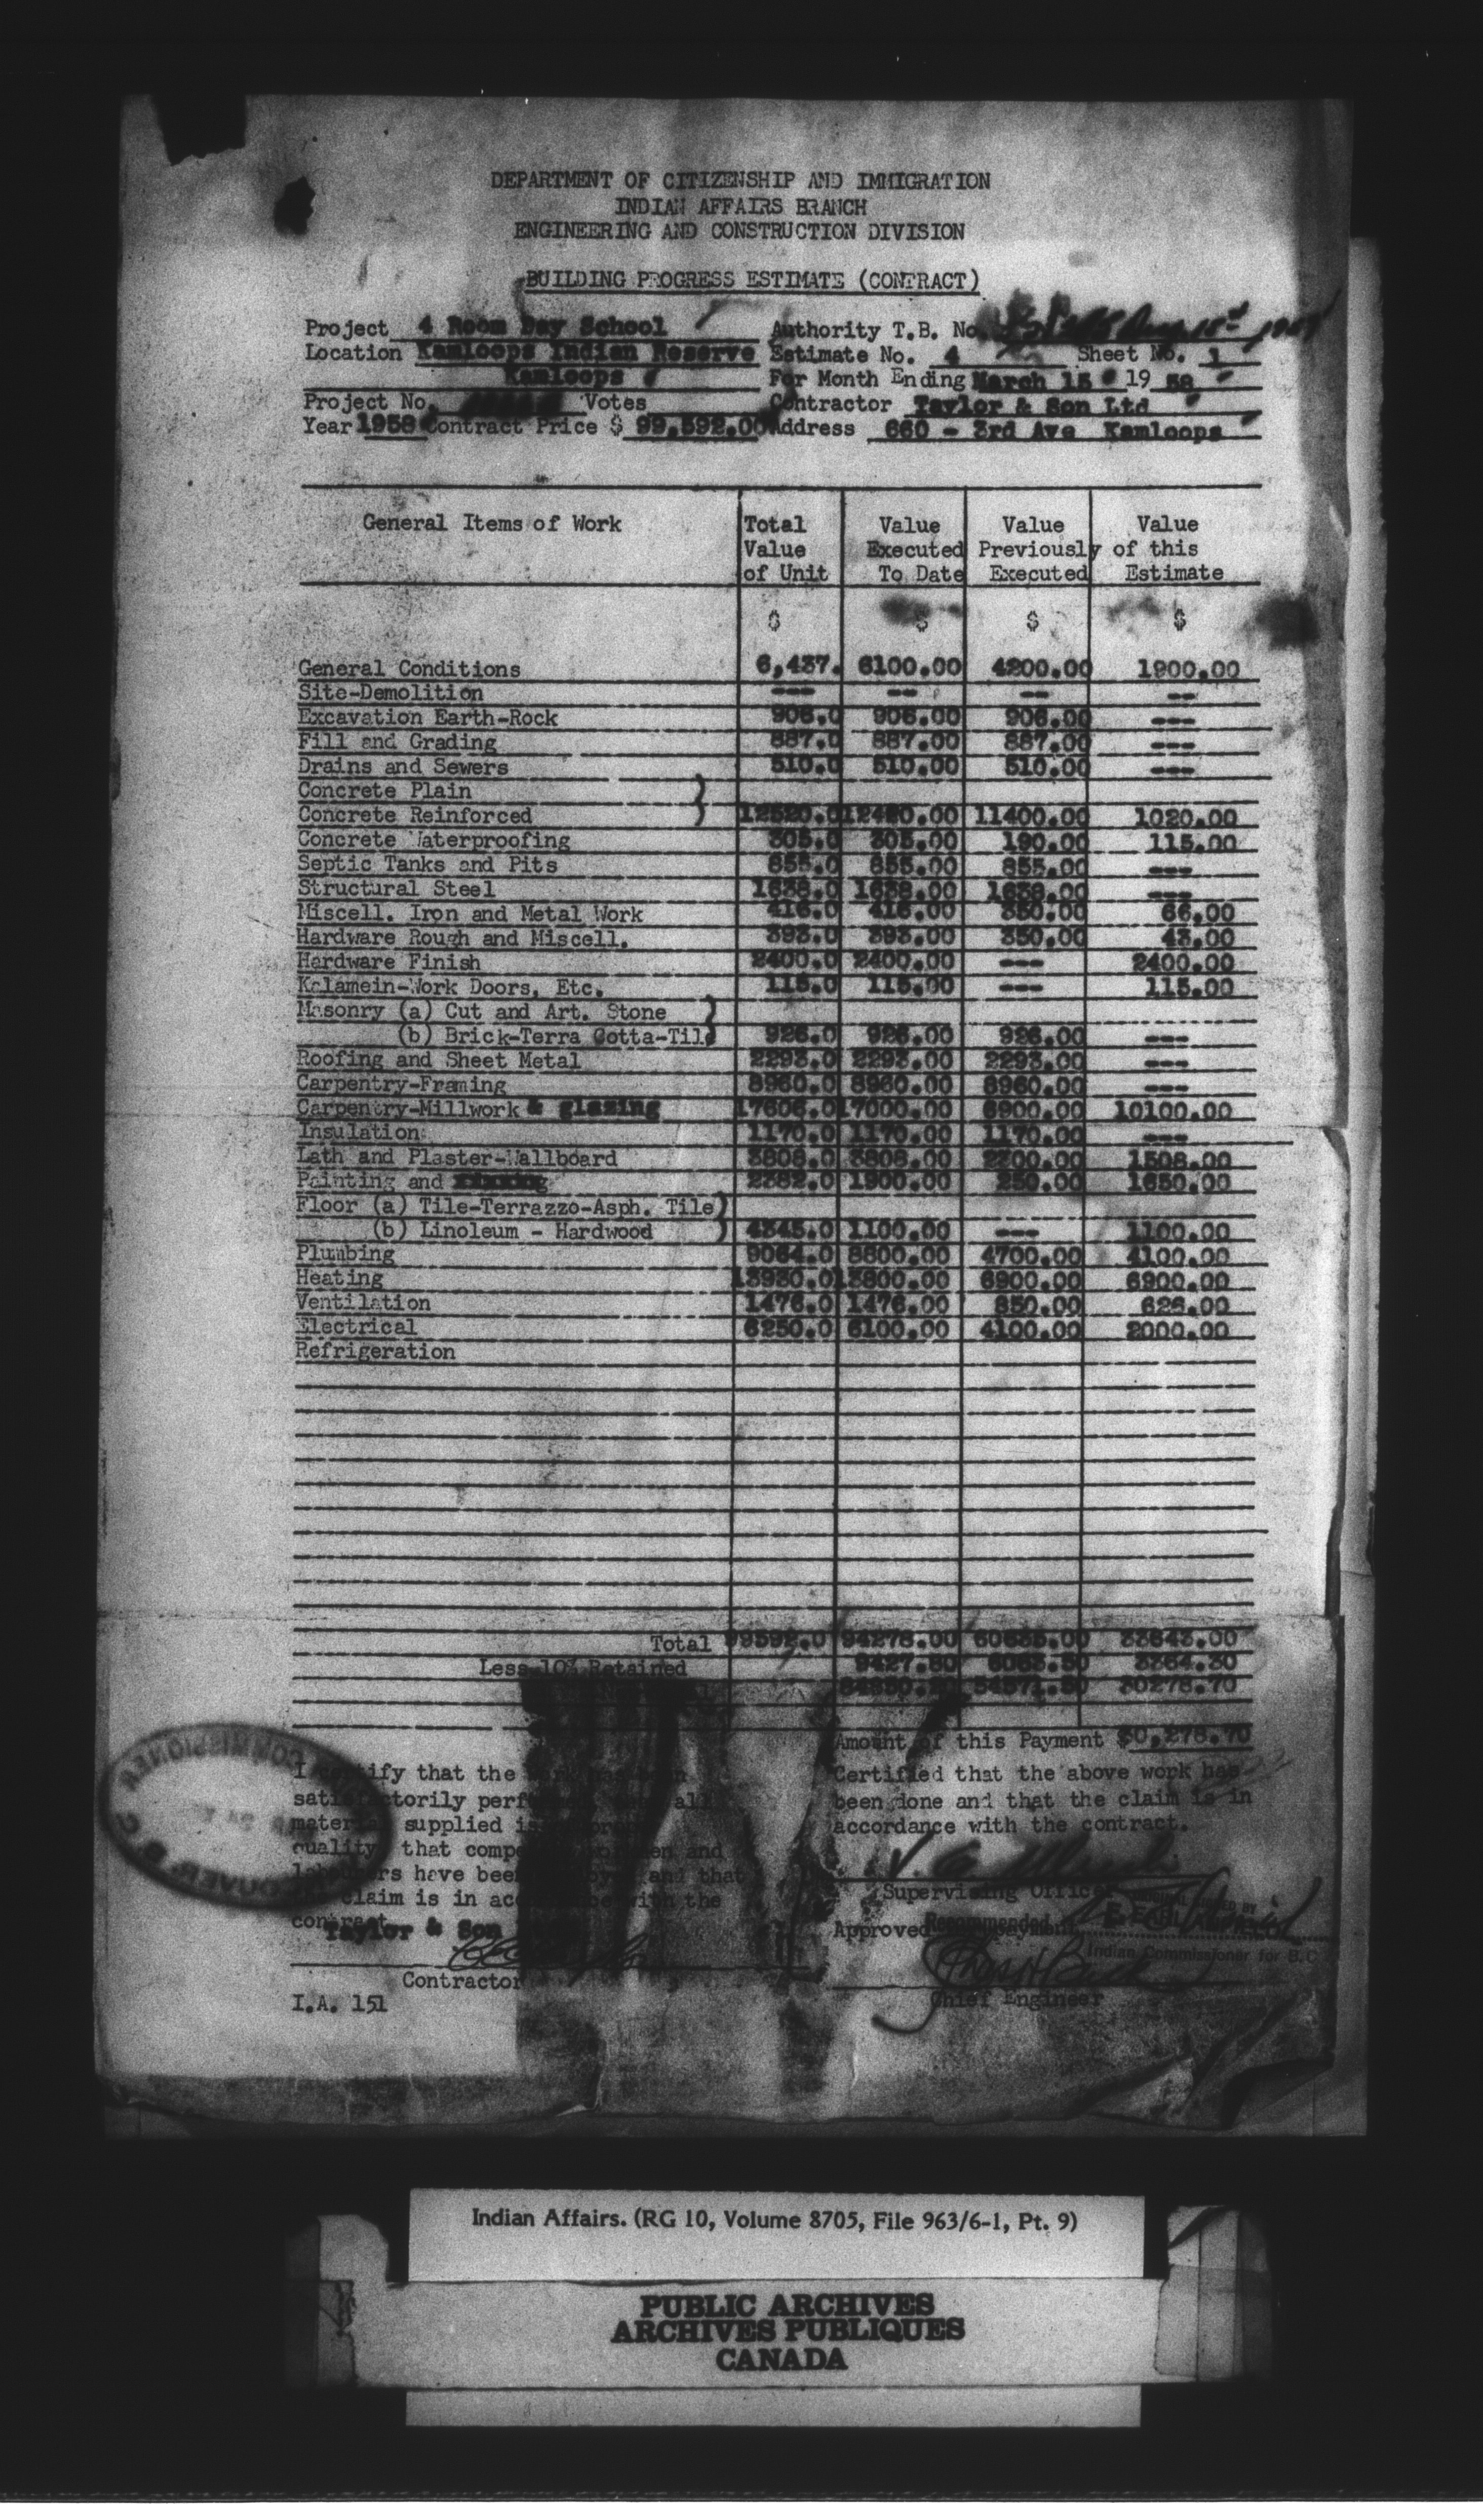 DEPARTMENT OF CITIZENSHIP AND IMMIGRATION
INDIAN AFFAIRS BRANCH
ENGINEERING AND CONSTRUCTION DIVISION
BUILDING PROGRESS ESTIMATE (CONTRACT)
Project 4 Room Day School Authority T.B. No.
Location Kamloops Indian Reserve Estimate No. 4 Sheet No. 1
Kamloops For Month Ending March 15 19 58
Project No. Votes Contractor Taylor & Son Ltd
Year 1958 Contract Price $ 99,592.00 Address 660 - 3rd Ave Kamloops
General Items of Work Total Value Value Value
Value Executed Previously of this
of Unit To Date Executed Estimate
$ $ $ $
General Conditions 6,437. 6100.00 4200.00 1900.00
Site-Demolition --- -- -- --
Excavation Earth-Rock 906.0 906.00 906.00 ---
Fill and Grading 887.0 887.00 887.00 ---
Drains and Sewers 510.0 510.00 510.00 ---
Concrete Plain
Concrete Reinforced 12520.0 12420.00 11400.00 1020.00
Concrete Waterproofing 305.0 305.00 190.00 115.00
Septic Tanks and Pits 855.0 855.00 855.00 ---
Structural Steel 1638.0 1638.00 1638.00 ---
Miscell. Iron and Metal Work 416.0 416.00 350.00 66.00
Hardware Rough and Miscell. 393.0 393.00 350.00 43.00
Hardware Finish 2400.0 2400.00 --- 2400.00
Kalamein-Work Doors, Etc. 115.0 115.00 --- 115.00
Masonry (a) Cut and Art. Stone
(b) Brick-Terra Cotta-Tile 926.0 926.00 926.00 ---
Roofing and Sheet Metal 2293.0 2293.00 2293.00 ---
Carpentry-Framing 8960.0 8960.00 8960.00 ---
Carpentry-Millwork & glazing 17606.0 17000.00 6900.00 10100.00
Insulation 1170.0 1170.00 1170.00 ---
Lath and Plaster-Wallboard 3808.0 3808.00 2300.00 1508.00
Painting and 2382.0 1900.00 250.00 1650.00
Floor (a) Tile-Terrazzo-Asph. Tile
(b) Linoleum - Hardwood 4345.0 1100.00 --- 1100.00
Plumbing 9064.0 8800.00 4700.00 4100.00
Heating 13930.0 13800.00 6900.00 6900.00
Ventilation 1476.0 1476.00 850.00 626.00
Electrical 6250.0 6100.00 4100.00 2000.00
Refrigeration
Total 99592.0 94278.00 60635.00 33643.00
Less 10% Retained 9427.80 6063.50 3364.30
84850.20 54571.50 30278.70
Amount of this Payment $30,278.70
I certify that the work has been
satisfactorily performed, that all
material supplied is
quality, that competent workmen and
labourers have been employed and that
claim is in accordance with the
contract.
Taylor & Son
Contractor
I.A. 151
Certified that the above work has
been done and that the claim is in
accordance with the contract.
Supervising Officer
Approved Recommended payment
Indian Commissioner for B.C.
Chief Engineer
Indian Affairs. (RG 10, Volume 8705, File 963/6-1, Pt. 9)
PUBLIC ARCHIVES
ARCHIVES PUBLIQUES
CANADA